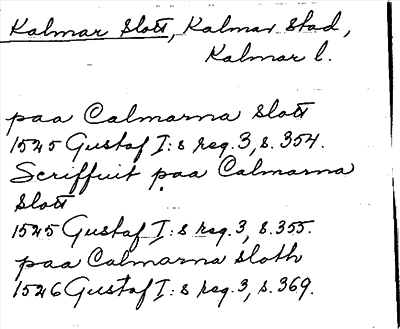 Kalmar slott, Kalmar stad,
Kalmar l.
paa Calmarna slott
1525 Gustaf I:s reg. 3, s. 354.
Scriffuit paa Calmarna
slott
1525 Gustaf I:s reg. 3, s. 355.
paa Calmarna sloth
1526 Gustaf I:s reg. 3, s. 369.